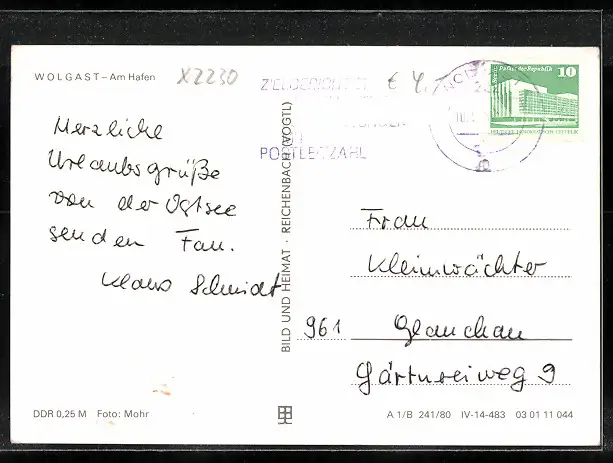 WOLGAST – Am Hafen
X2230
€ 4,-
POSTLEITZAHL
Palast der Republik
10
Herzliche
Urlaubsgrüße
von der Ostsee
senden Fam.
Klaus Schmidt
Frau
Kleinwächter
961 Glauchau
Gärtnereiweg 9
BILD UND HEIMAT · REICHENBACH (VOGTL)
DDR 0,25 M Foto: Mohr
A 1/B 241/80 IV-14-483 03 01 11 044